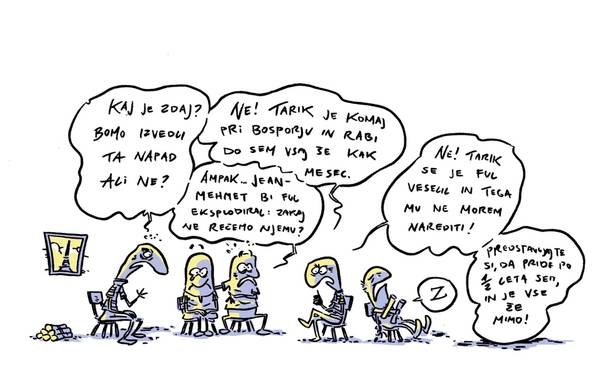 KAJ JE ZDAJ?
BOMO IZVEDLI
TA NAPAD
ALI NE?
NE! TARIK JE KOMAJ
PRI BOSPORJU IN RABI
DO SEM VSAJ ŠE KAK
MESEC.
AMPAK... JEAN-
MEHMET BI FUL
EKSPLODIRAL: ZAKAJ
NE REČEMO NJEMU?
NE! TARIK
SE JE FUL
VESELIL IN TEGA
MU NE MOREM
NAREDITI!
PREDSTAVLJAJTE
SI, DA PRIDE PO
1/2 LETA SEM,
IN JE VSE
ŽE
MIMO!
Z